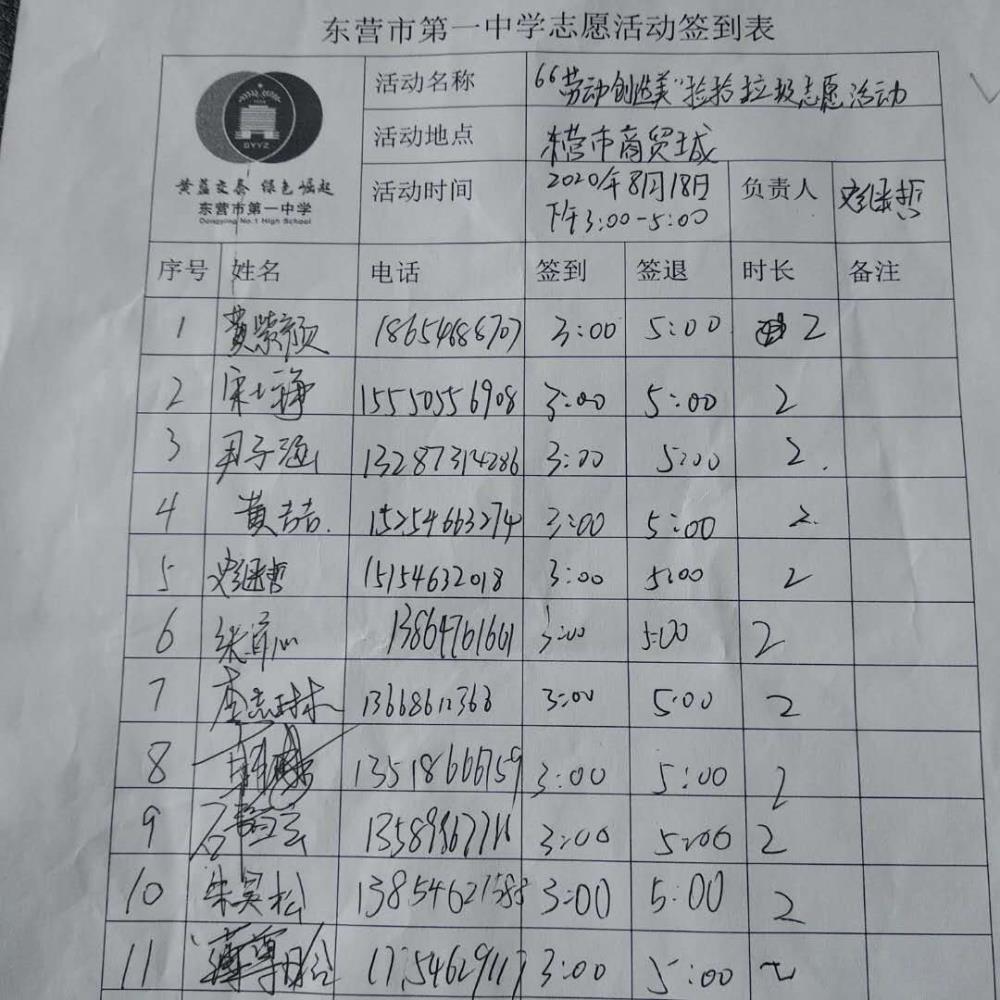 东营市第一中学志愿活动签到表
DYYZ
黄蓝交泰 绿色崛起
东营市第一中学
Dongying No.1 High School
活动名称 “劳动创造美”捡拾垃圾志愿活动
活动地点 东营市商贸城
活动时间 2020年8月18日 下午3:00-5:00 负责人
序号 姓名 电话 签到 签退 时长 备注
1 黄紫颜 18654688707 3:00 5:00 2
2 15550556908 3:00 5:00 2
3 尹子涵 13287314286 3:00 5:00 2.
4 黄喆. 15254663274 3:00 5:00 2.
5 15154632018 3:00 5:00 2
6 13864761661 3:00 5:00 2
7 13668612368 3:00 5:00 2
8 13518666759 3:00 5:00 2
9 3:00 5:00 2
10 朱昊松 13854621588 3:00 5:00 2
11 3:00 5:00 2